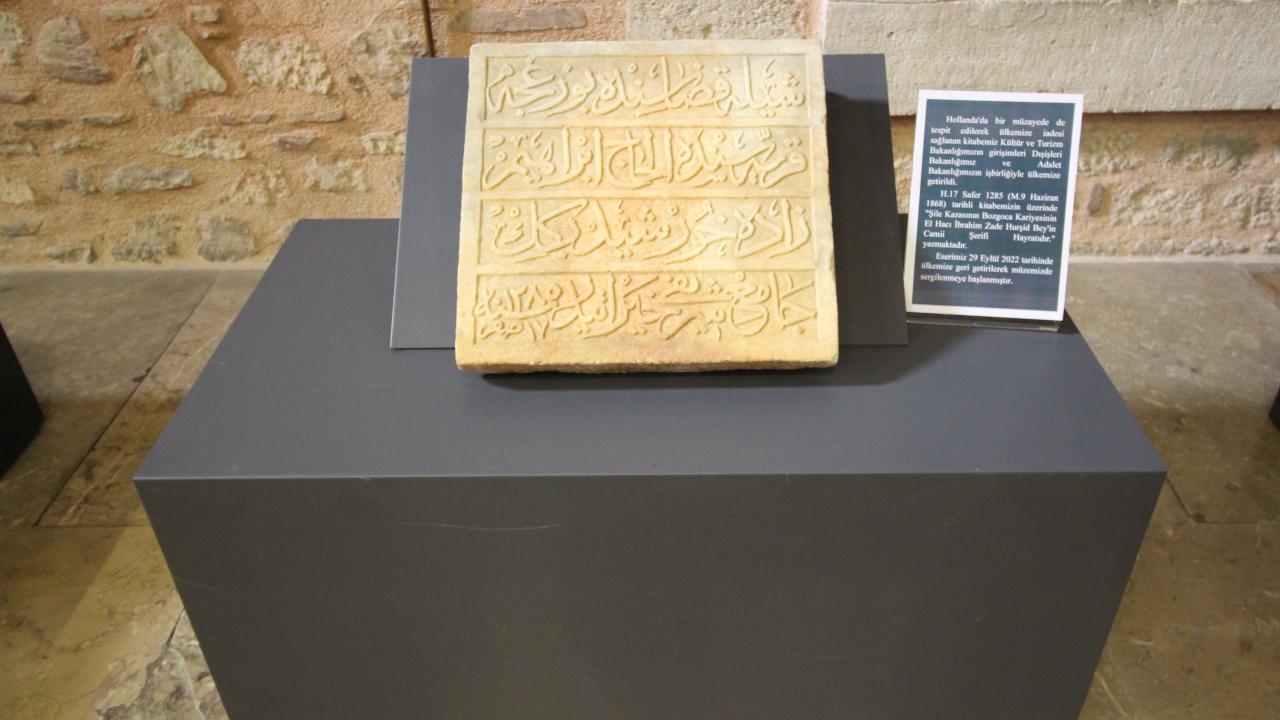 شيله قضاسنده بوزغجه
قريه سنده الحاج ابراهيم
زاده خورشيد بك ك
جامع شريف خيراتيدر سنه ١٢٨٥
١٧ صفر
Hollanda'da bir müzayede de
tespit edilerek ülkemize iadesi
sağlanan kitabemiz Kültür ve Turizm
Bakanlığımızın girişimleri Dışişleri
Bakanlığımız ve Adalet
Bakanlığımızın işbirliğiyle ülkemize
getirildi.
H.17 Safer 1285 (M.9 Haziran
1868) tarihli kitabemizin üzerinde
"Şile Kazasının Bozgoca Kariyesinin
El Hacı İbrahim Zade Hurşid Bey'in
Camii Şerifi Hayratıdır."
yazmaktadır.
Eserimiz 29 Eylül 2022 tarihinde
ülkemize geri getirilerek müzemizde
sergilenmeye başlanmıştır.